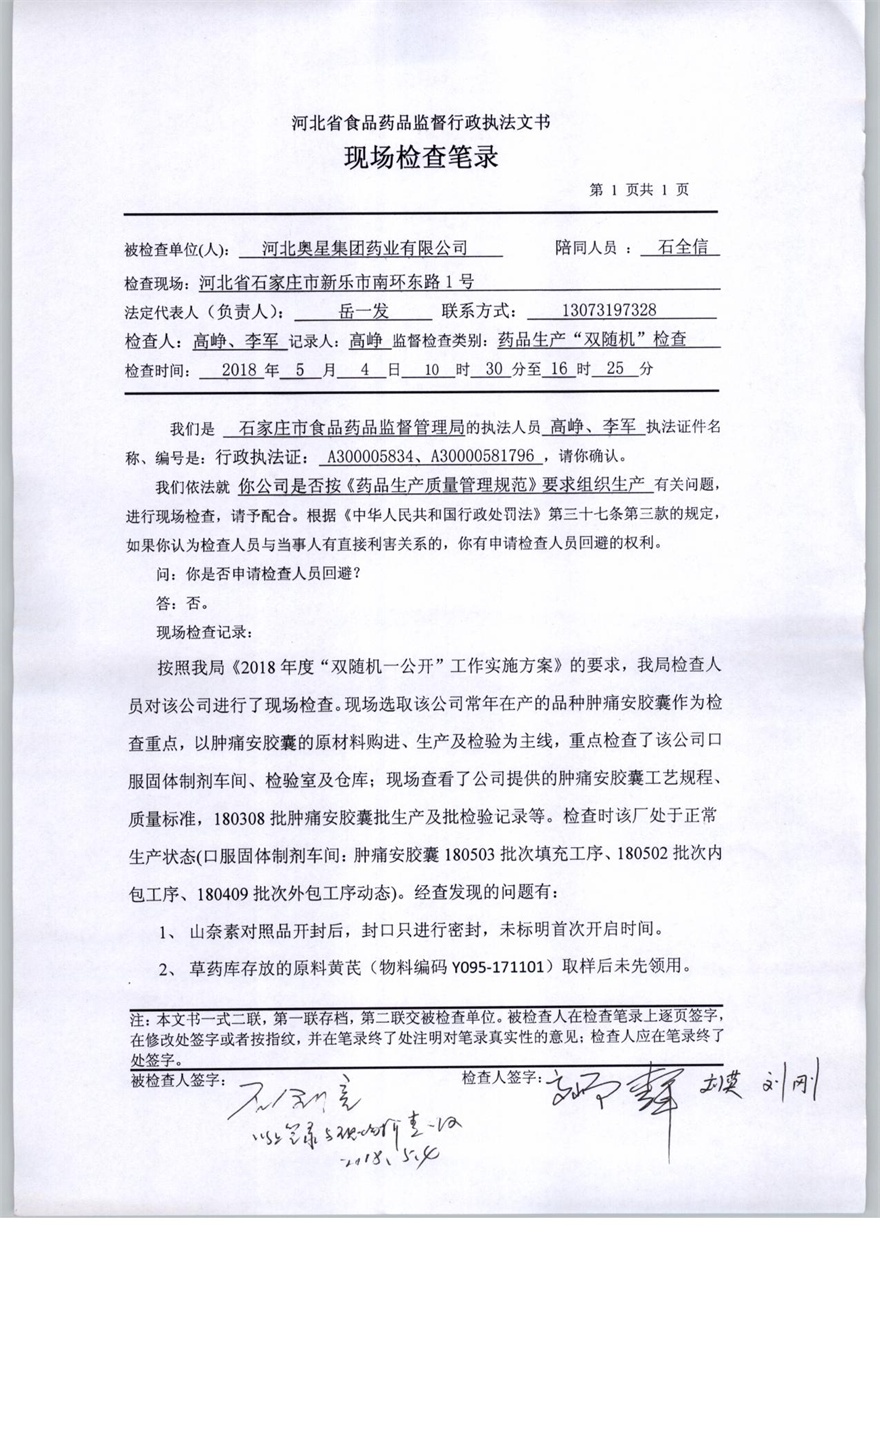 河北省食品药品监督行政执法文书
现场检查笔录
第 1 页共 1 页
被检查单位(人): 河北奥星集团药业有限公司 陪同人员 : 石全信
检查现场: 河北省石家庄市新乐市南环东路 1 号
法定代表人(负责人): 岳一发 联系方式: 13073197328
检查人: 高峥、李军 记录人: 高峥 监督检查类别: 药品生产“双随机”检查
检查时间: 2018 年 5 月 4 日 10 时 30 分至 16 时 25 分
我们是 石家庄市食品药品监督管理局的执法人员 高峥、李军 执法证件名
称、编号是: 行政执法证: A300005834、A30000581796 ，请你确认。
我们依法就 你公司是否按《药品生产质量管理规范》要求组织生产 有关问题，
进行现场检查，请予配合。根据《中华人民共和国行政处罚法》第三十七条第三款的规定，
如果你认为检查人员与当事人有直接利害关系的，你有申请检查人员回避的权利。
问：你是否申请检查人员回避？
答：否。
现场检查记录：
按照我局《2018 年度“双随机一公开”工作实施方案》的要求，我局检查人
员对该公司进行了现场检查。现场选取该公司常年在产的品种肿痛安胶囊作为检
查重点，以肿痛安胶囊的原材料购进、生产及检验为主线，重点检查了该公司口
服固体制剂车间、检验室及仓库；现场查看了公司提供的肿痛安胶囊工艺规程、
质量标准，180308 批肿痛安胶囊批生产及批检验记录等。检查时该厂处于正常
生产状态(口服固体制剂车间：肿痛安胶囊 180503 批次填充工序、180502 批次内
包工序、180409 批次外包工序动态)。经查发现的问题有：
1、 山奈素对照品开封后，封口只进行密封，未标明首次开启时间。
2、 草药库存放的原料黄芪（物料编码 Y095-171101）取样后未先领用。
注：本文书一式二联，第一联存档，第二联交被检查单位。被检查人在检查笔录上逐页签字，
在修改处签字或者按指纹，并在笔录终了处注明对笔录真实性的意见；检查人应在笔录终了
处签字。
被检查人签字： 检查人签字： 刘刚
以上笔录与现场检查一致
2018.5.4